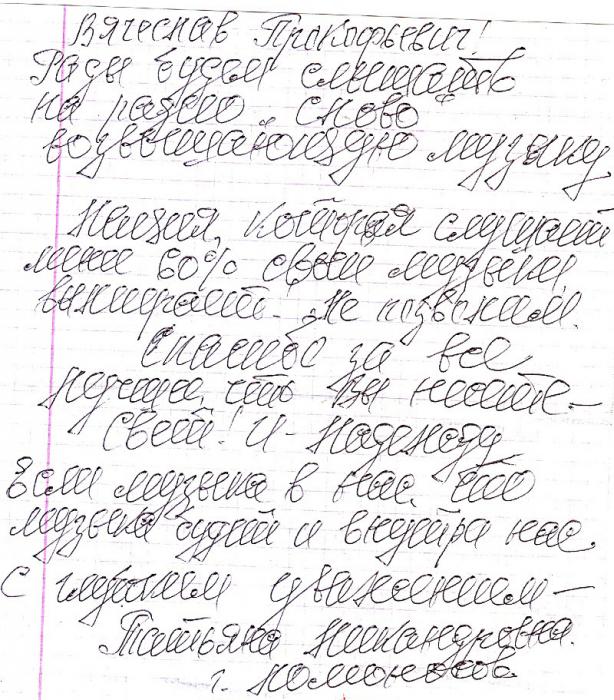 Вячеслав Прокофьевич!
Рады будем слышать
на радио снова
возвышающую музыку
Нация, которая слушает
менее 60% своей музыки,
вымирает. Не позволим.
Спасибо за все
лучшее, что Вы несёте –
Свет! И – Надежду
Если музыка в нас, то
музыка будит и внутри нас.
С глубоким уважением –
Татьяна Никандровна.
г.